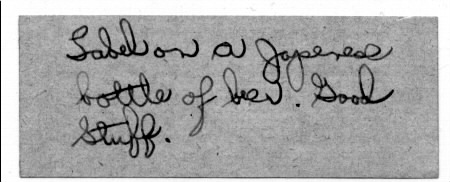 Label on a Japenese
bottle of beer. Good
Stuff.